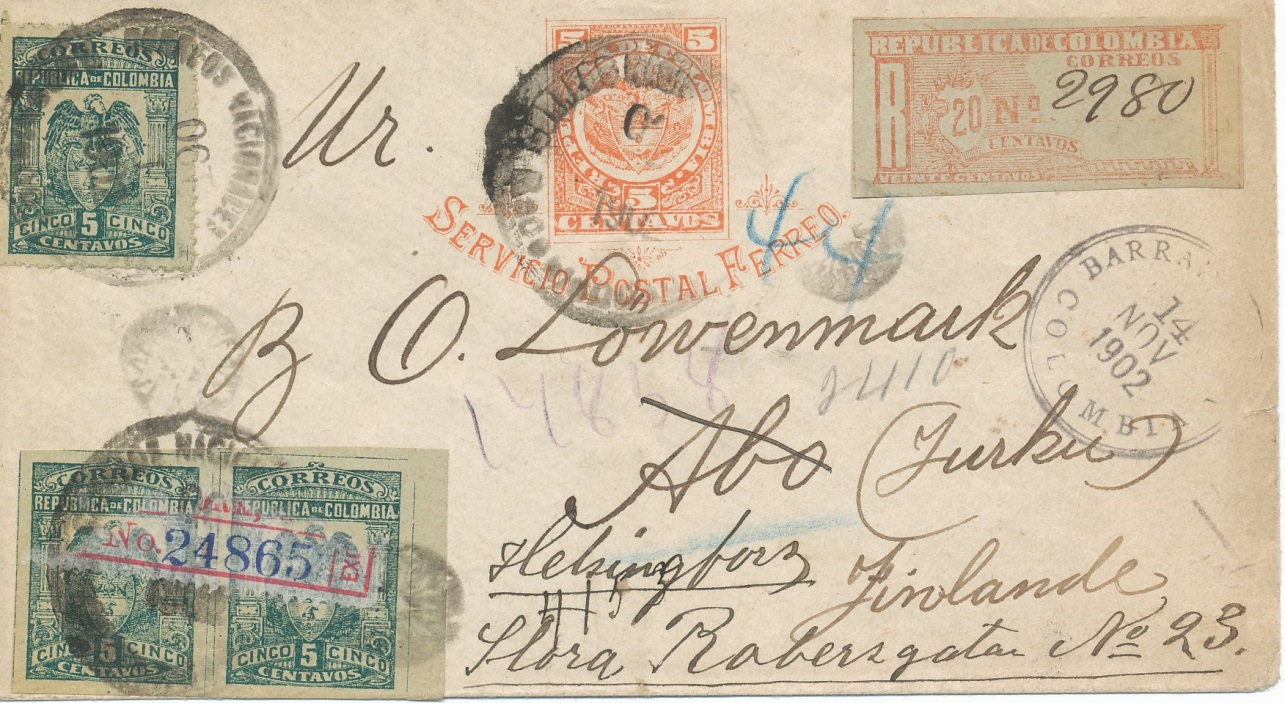 CORREOS
REPUBLICA DE COLOMBIA
CINCO 5 CINCO
CENTAVOS
CORREOS NACIONALES
5 5
5
CENTAVOS
1902
SERVICIO POSTAL FERREO.
REPUBLICA DE COLOMBIA
CORREOS
R 20 No 2980
CENTAVOS
VEINTE CENTAVOS
Mr.
44
B O. Lowenmark
BARRA
14
NOV
1902
COLOMBIA
14858
2410
Abo (Turku)
Helsingborz Finlande
Stora Roberzgatan No 23.
CORREOS CORREOS
REPUBLICA DE COLOMBIA REPUBLICA DE COLOMBIA
No. 24865
CINCO 5 CINCO CINCO 5 CINCO
CENTAVOS CENTAVOS